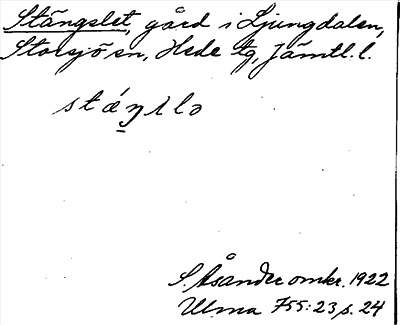 Stängslet, gård i Ljungdalen,
Storsjö sn, Hede tg, Jämtl. l.
stáŋ̠ılə
S. Åsander omkr. 1922
Ulma 755:23 s. 24